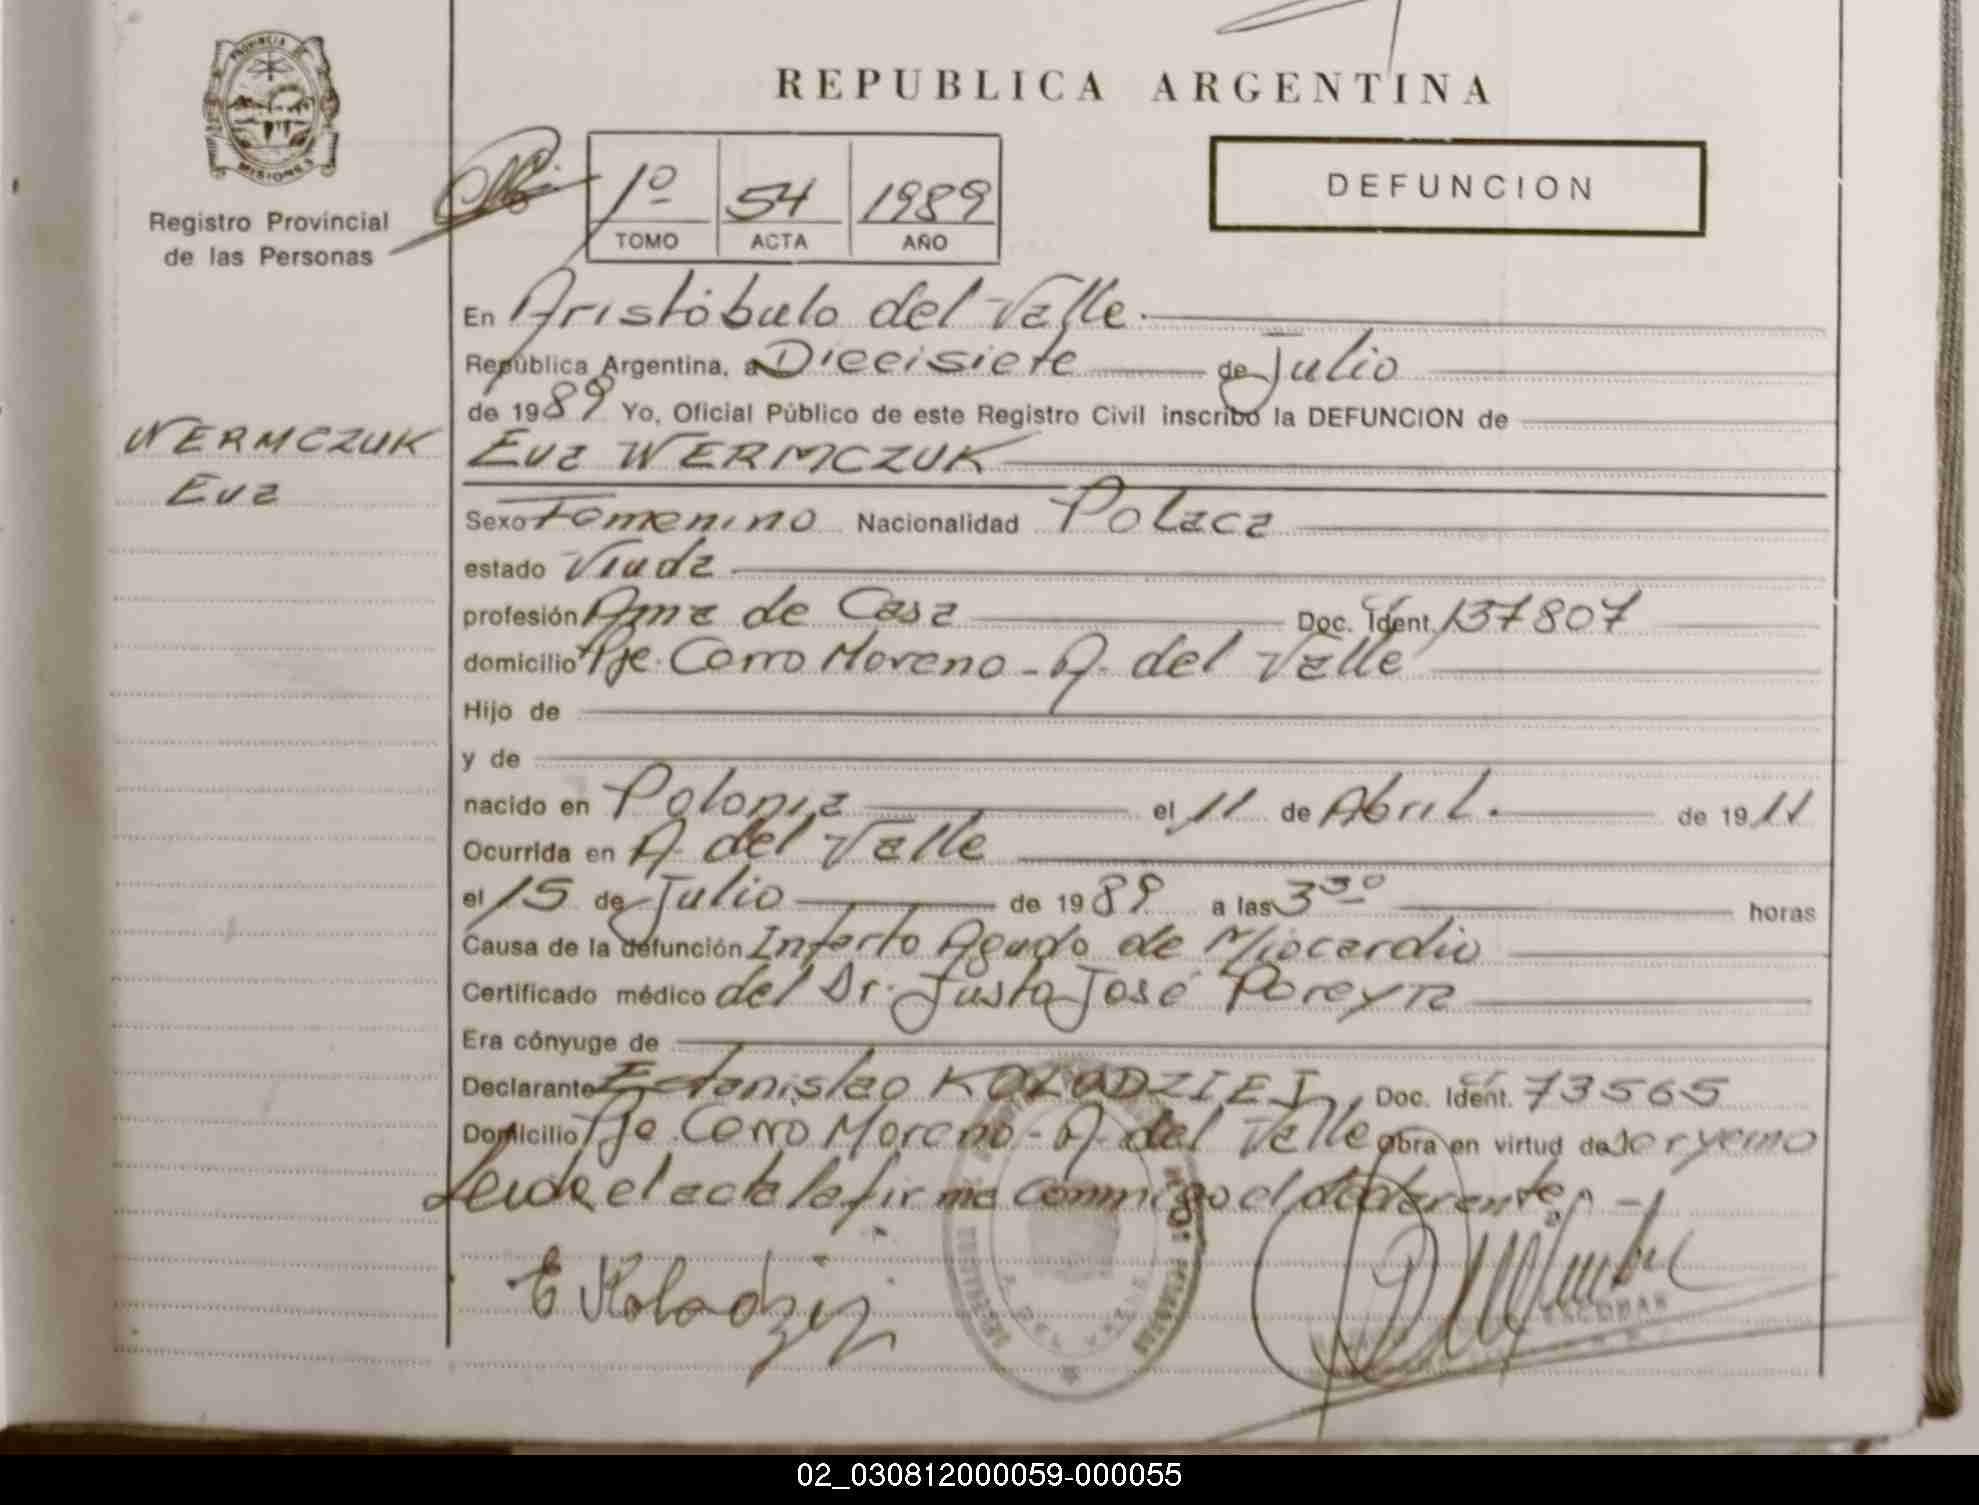 PROVINCIA DE
MISIONES
Registro Provincial
de las Personas
REPUBLICA ARGENTINA
1º 54 1989
TOMO ACTA AÑO
DEFUNCION
En Aristóbulo del Valle.
República Argentina, a Diecisiete de Julio
de 1989 Yo, Oficial Público de este Registro Civil inscribo la DEFUNCION de
WERMCZUK
Eva
Eva WERMCZUK
Sexo Femenino Nacionalidad Polaca
estado Viuda
profesión Ama de Casa Doc. Ident. 137807
domicilio Pje. Cerro Moreno - A. del Valle
Hijo de
y de
nacido en Polonia el 11 de Abril. de 1911
Ocurrida en A. del Valle
el 15 de Julio de 1989 a las 3 30 horas
Causa de la defunción Infarto Agudo de Miocardio
Certificado médico del Dr. Justo José Pereyra
Era cónyuge de
Declarante Estanislao KOLODZIEJ, Doc. Ident. 73565
Domicilio Pje. Cerro Moreno - A. del Valle obra en virtud de ser yerno
Leida el acta la firma conmigo el declarante. -
E Kolodziej
ESCOBAR
02_030812000059-000055